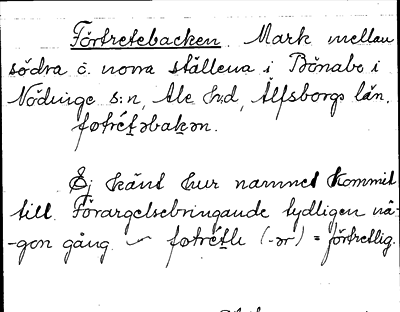 Förtretebacken. Mark mellan
södra o. norra ställena i Bönabo i
Nödinge s:n, Ale h:d, Älfsborgs län.
fǝtrétǝbakǝn.
Ej känt hur namnet kommit
till. Förargelsebringande tydligen nå-
-gon gång. – fǝtrétli (-ǝr) = förtretlig.